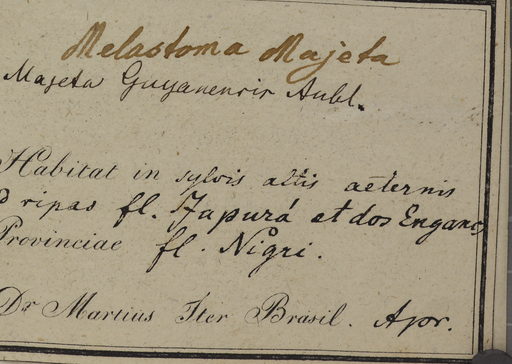 Melastoma Majeta
Majeta Guyanensis Aubl.
Habitat in sylvis altis aeternis
d ripas fl. Japurá et dos Enganos
Provinciae fl. Nigri.
Dr Martius Iter Brasil. Apr.